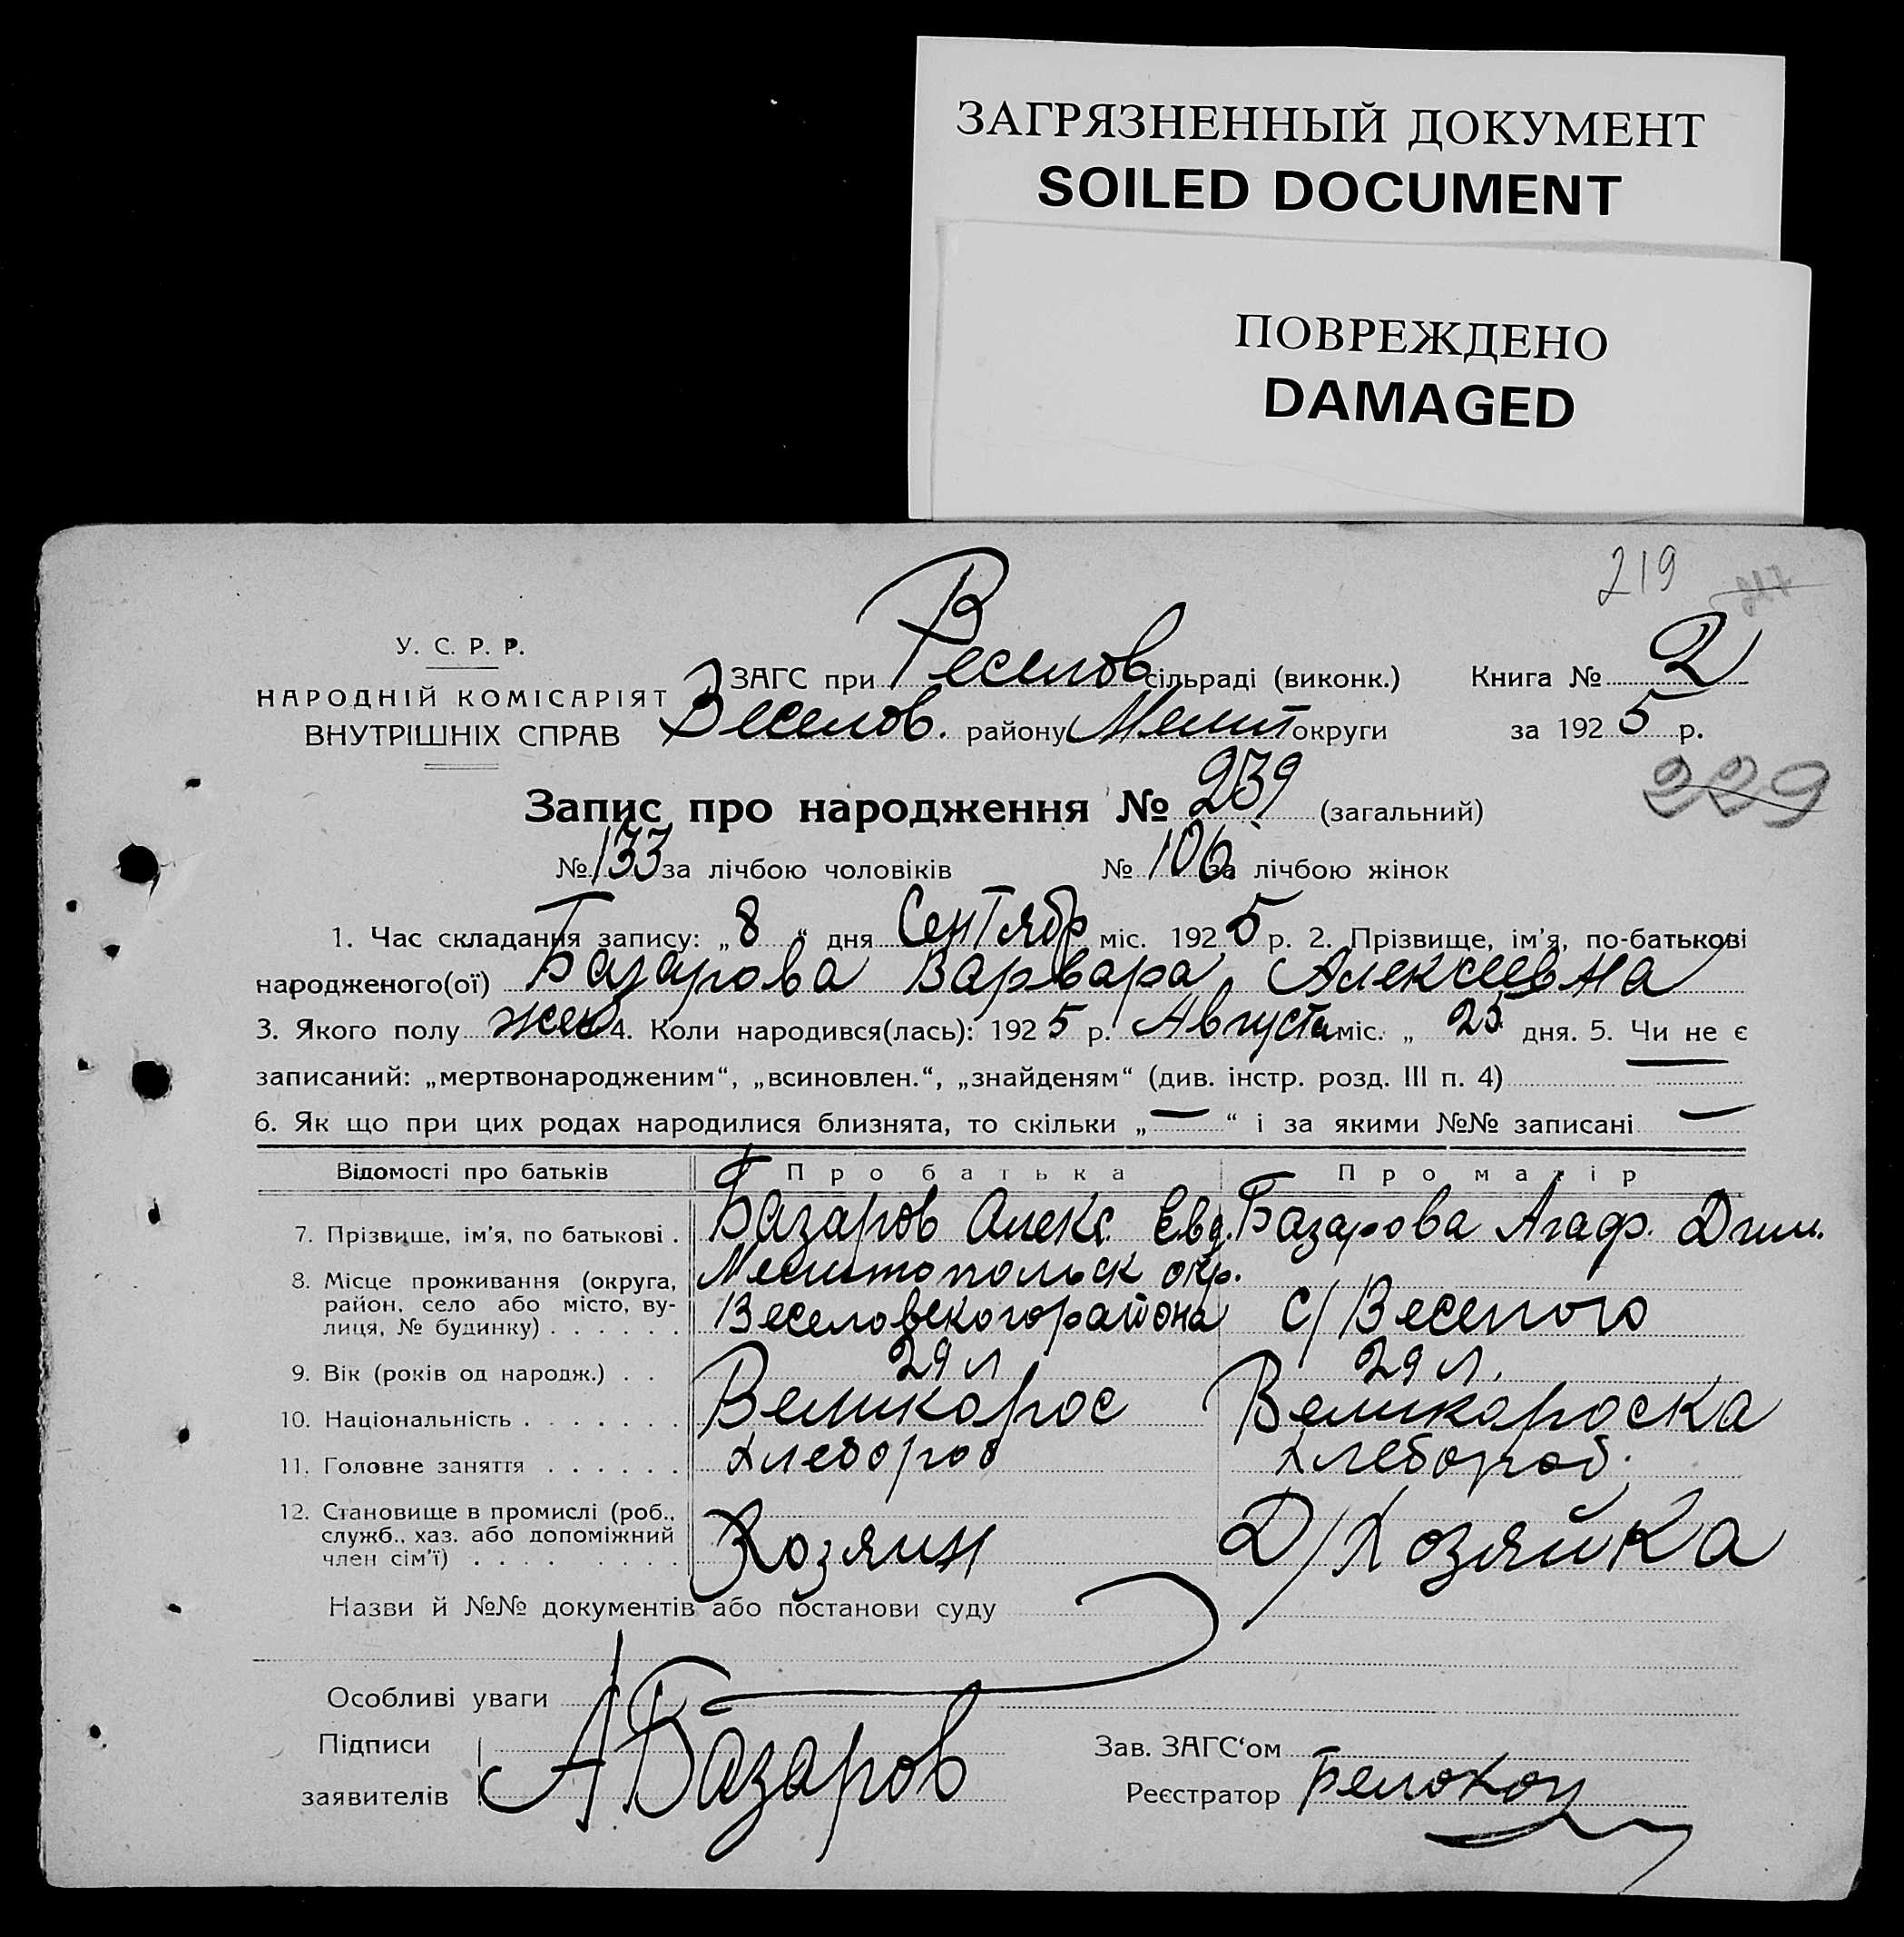 ЗАГРЯЗНЕННЫЙ ДОКУМЕНТ
SOILED DOCUMENT
ПОВРЕЖДЕНО
DAMAGED
219
У. С. Р. Р.
НАРОДНІЙ КОМІСАРІЯТ
ВНУТРІШНІХ СПРАВ
ЗАГС при Веселов сільраді (виконк.) Книга № 2
Веселов. району Мелит округи за 192 5 р.
229
Запис про народження № 239 (загальний)
№ 133 за лічбою чоловіків № 106 за лічбою жінок
1. Час складання запису: „ 8 “ дня Сентябр міс. 192 5 р. 2. Прізвище, ім’я, по-батькові
народженого(ої) Базарова Варвара Алексеевна
3. Якого полу жен 4. Коли народився(лась): 192 5 р. Августа міс. „ 25 дня. 5. Чи не є
записаний: „мертвонародженим“, „всиновлен.“, „знайденям“ (див. інстр. розд. III п. 4) —
6. Як що при цих родах народилися близнята, то скільки „ — “ і за якими №№ записані —
Відомості про батьків Про батька Про матір
7. Прізвище, ім’я, по батькові . Базаров Алекс. Евд. Базарова Агаф. Дми.
8. Місце проживання (округа, Мелитопольск окр.
район, село або місто, ву- Веселовского района С/Веселого
лиця, № будинку) . . . . . .
9. Вік (років од народж.) . . 29 л 29 л.
10. Національність . . . . . . . Великорос Великороска
11. Головне заняття . . . . . . Хлебороб Хлебороб.
12. Становище в промислі (роб.,
служб., хаз. або допоміжний Хозяин Д/Хозяйка
член сім’ї) . . . . . . . .
Назви й №№ документів або постанови суду
Особливі уваги
Підписи
заявителів А Базаров
Зав. ЗАГС‘ом
Реєстратор Белокон